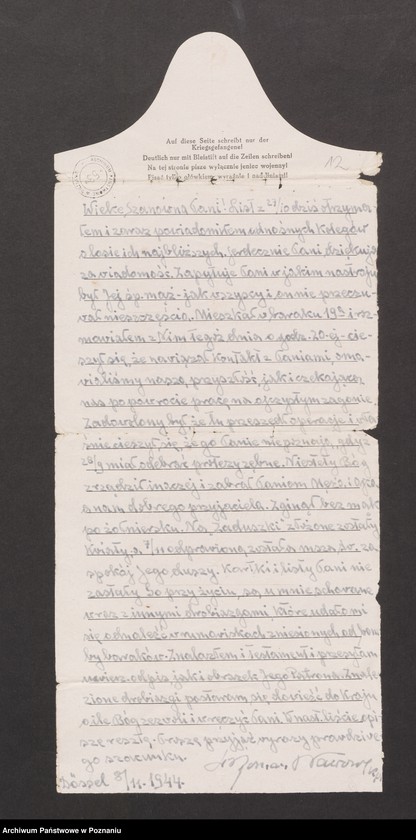 Auf diese Seite schreibt nur der
Kriegsgefangene!
Deutlich nur mit Bleistift auf die Zeilen schreiben!
Na tej stronie pisze wyłącznie jeniec wojenny!
Pisać tylko ołówkiem, wyraźnie i nad liniami!
12
Wielce Szanowna Pani! List z 27/10 dziś otrzyma-
łem i zaraz powiadomiłem odnośnych kolegów
o losie ich najbliższych. Serdecznie Pani dziękuję
za wiadomość. Zapytuje Pani w jakim nastroju
był Jej śp. mąż - jak wszyscy i on nie przeczu-
wał nieszczęścia. Mieszkał w baraku 193 i roz-
mawiałem z Nim tegoż dnia o godz. 20-ej - cie-
szył się, że nawiązał kontakt z Paniami, oma-
wialiśmy naszą przyszłość, jak i czekającą
nas po powrocie pracę na ojczystym zagonie.
Zadowolony był że tu przeszedł operację i
śmie cieszył się, że go Panie nie poznają, gdyż
28/9 miał odebrać protezy zębne. Niestety Bóg
zrządził inaczej i zabrał Paniom Męża i Ojca
a nam dobrego przyjaciela. Zginął bez męki
po żołniersku. Na Zaduszki złożone zostały
kwiaty, a 7/11 odprawiona została msza św. za
spokój Jego duszy. Kartki i listy Pani nie
zastały Go przy życiu, są u mnie schowane
wraz z innymi drobiazgami, które udało mi
się odnaleźć w rumowiskach zniesionych od bom-
by baraków. Znalazłem i Testament i przesyłam
odpis jak i obrazek Jego Patrona. Znale-
zione drobiazgi postaram się dowieźć do Kraju
o ile Bóg zezwoli i wręczyć Pani. W nast. liście opi-
szę resztę. Proszę przyjąć wyrazy prawdziwe-
go szacunku.
Dössel 8/11. 1944.
Archiwum Państwowe w Poznaniu